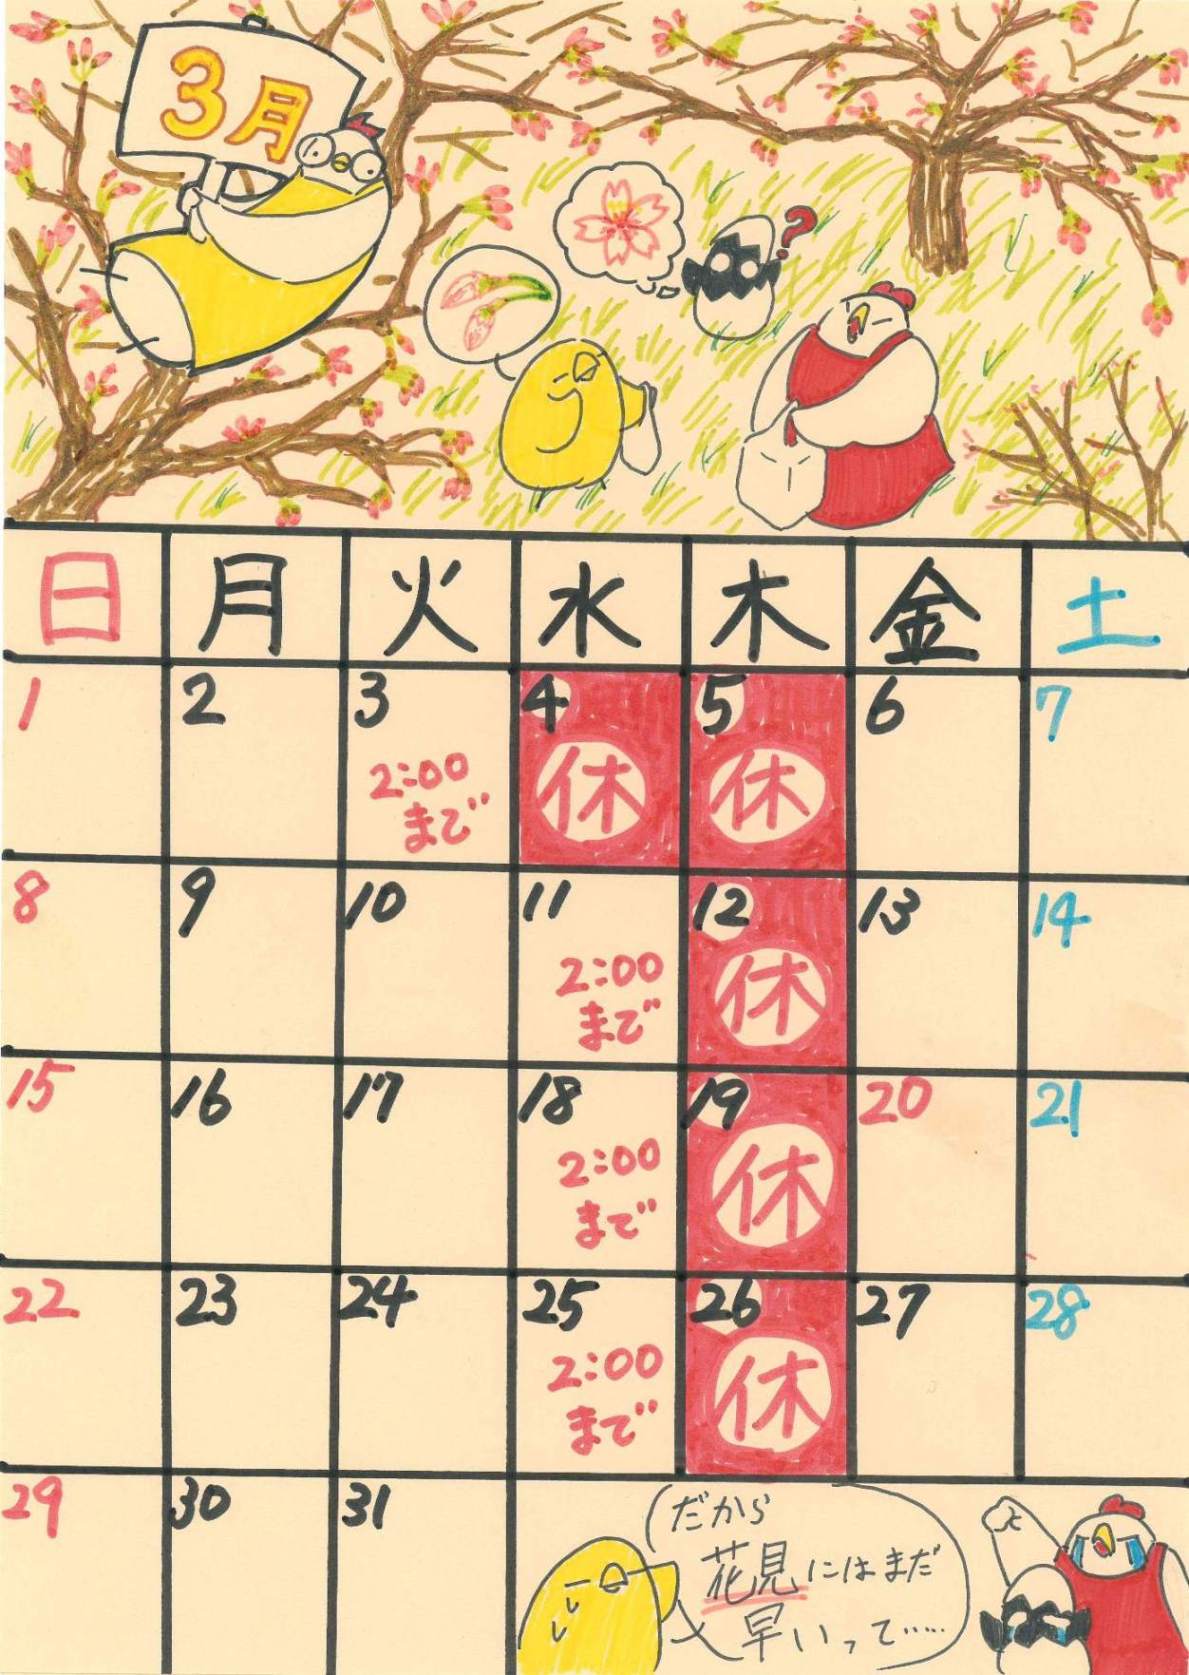 3月
?
日 月 火 水 木 金 土
1 2 3 4 5 6 7
2:00
まで
休 休
8 9 10 11 12 13 14
2:00
まで
休
15 16 17 18 19 20 21
2:00
まで
休
22 23 24 25 26 27 28
2:00
まで
休
29 30 31
だから
花見にはまだ
早いって……